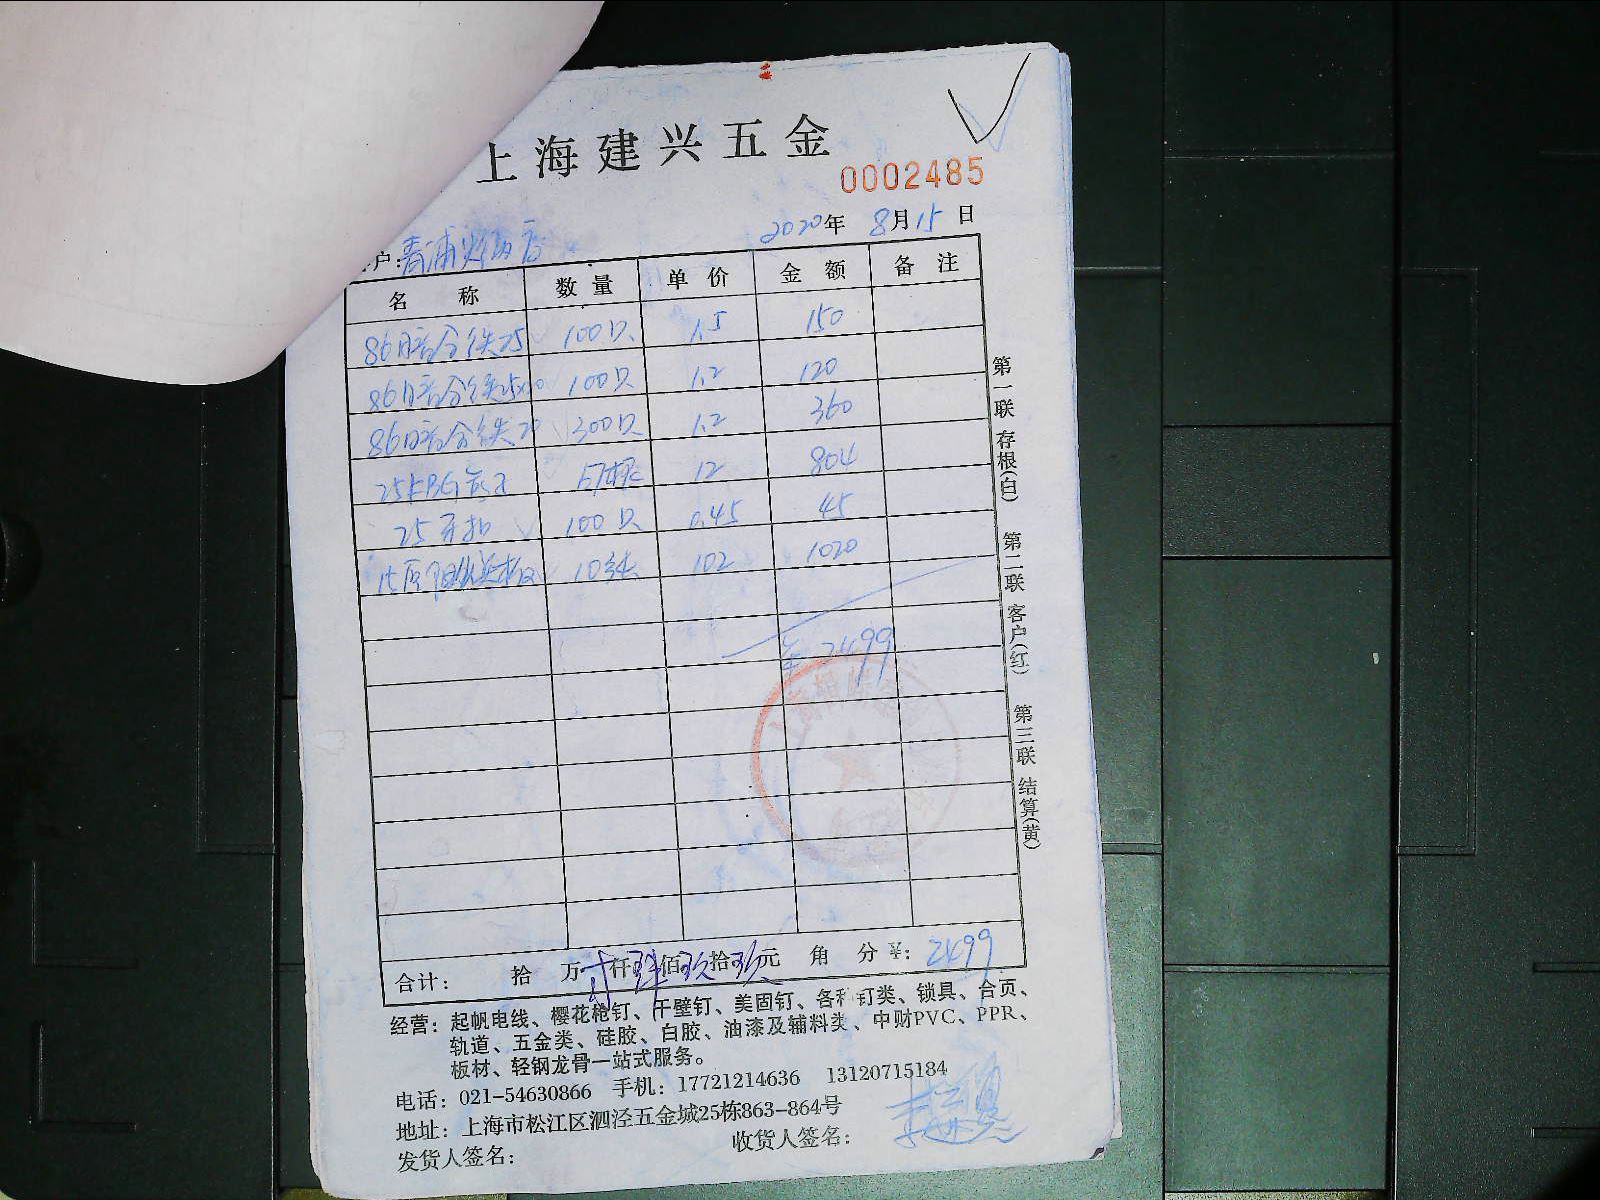 上海建兴五金
0002485
2020年 8月15日
户：青浦
名 称 数 量 单 价 金 额 备 注
86暗合铁25 100只 1.5 150
86暗合铁25 100只 1.2 120
86暗合铁20 300只 1.2 360
25KBG 67根 12 804
25 100只 0.45 45
102 1020
2499
合计： 拾 万贰仟肆佰玖拾玖元 角 分 ¥：2499
经营：起帆电线、樱花枪钉、干壁钉、美固钉、各种钉类、锁具、合页、
轨道、五金类、硅胶、白胶、油漆及辅料类、中财PVC、PPR、
板材、轻钢龙骨一站式服务。
电话：021-54630866 手机：17721214636 13120715184
地址：上海市松江区泗泾五金城25栋863-864号
发货人签名： 收货人签名：
第一联 存根(白) 第二联 客户(红) 第三联 结算(黄)